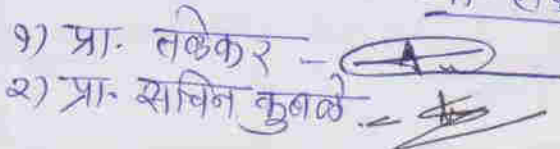 १) प्रा. तळेकर -
२) प्रा. सचिन कुबळे -